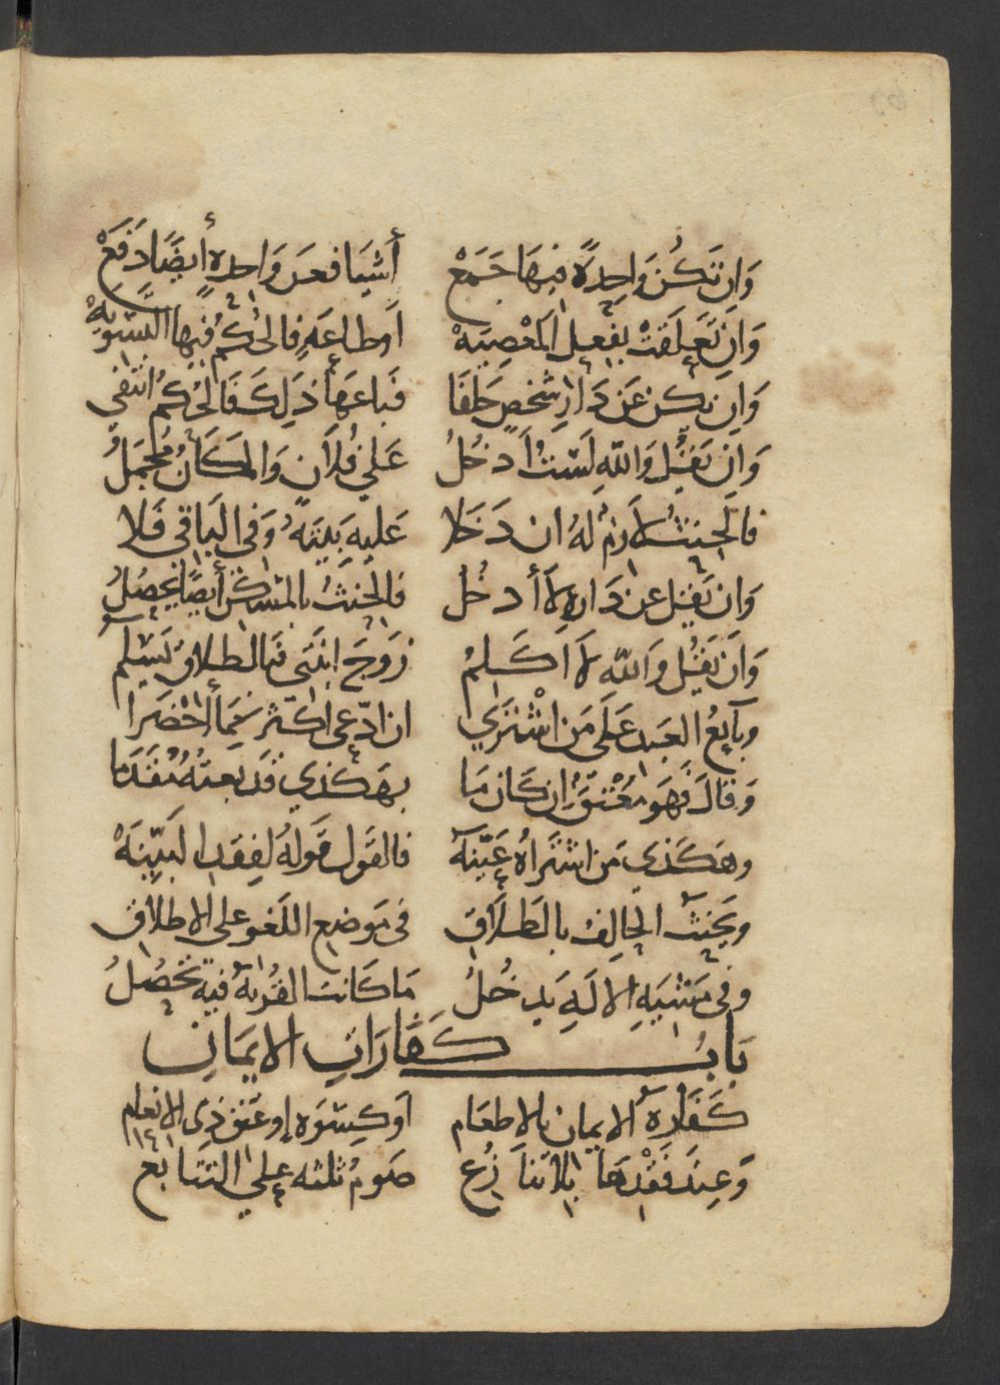 وَاِن تَكُن وَاحِدَةً فِيهَا جَمَعْ أَشيَا فعن وَاحِدةٍ أَيضًا دَفَعْ
وَاِن تَعَلَقَتْ بِفِعلِ المَعْصِيَهْ اَو طاعَةٍ فالحُكمُ فيها التَّسْوِيهْ
وَاِن يكن عَن دَارِ شخصٍ حَلَفَا فَبَاعَهَا فذَلِكَ فَالحُكمُ انتفي
وَان يَقُل وَاللّهِ لَسْتُ اَدخُلُ عَلي فُلاَن وَالمَكَانُ مُجمَلُ
فالحِنثُ لاَزمٌ لهُ ان دَخَلا عَليهِ بَيتَهُ وَفي البَاقِي فَلا
وَان يَقُل عن دَارِهِ لاَ أدخُل فالحَنثُ بالمَسْكن أيضًا يحصُلُ
وَاَن يَقُل وَاللّه لاَ اَكَلِمُ زوَجَ ابنَتَى فَبالطلاق يَسْلم
وبَايعُ العَبد عَلَى مَن اشْتَرَي ان ادّعى اكثر مما أحْضَرا
وَقالَ فَهوَ مُعْتَقٌ ان كَان مَا بهَكَذي قَد بعتهُ مُتقَدّما
وهَكَذي مَن اشتَرَاهُ عَيّنَهْ فالقَول قَولهُ لفقد البَيّنَهْ
ويَحنَثُ الحالِفُ بالطَلاَقِ فى مَوضِع اللَغو على الاطلاَقِ
وفى مَشيَةِ الالَهِ يَدخُلُ مَا كَانت القُربَةُ فيهِ تحصُلُ
بَابُ كَفَّارَاتِ الايمَانِ
كَفَّارَةُ الايمان بالاطعَام اَو كِسْوَه او عَتقِ ذِى الانعام
وَعِندَ فَقْدهَا بلا تَنَازُع صَومُ ثلثه علي التتَابع